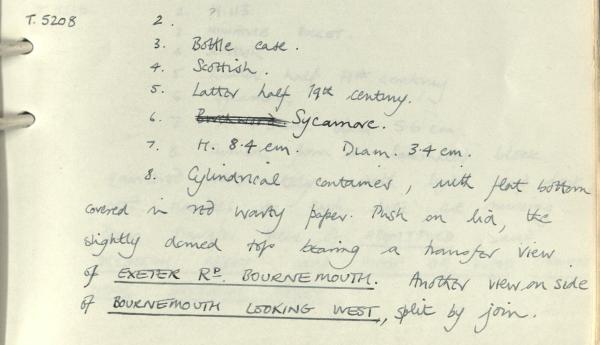 T. 5208
2.
3. Bottle case.
4. Scottish.
5. Latter half 19th century.
6. Sycamore.
7. H. 8.4 cm. Diam. 3.4 cm.
8. Cylindrical container, with flat bottom
covered in red warty paper. Push on lid, the
slightly domed top bearing a transfer view
of EXETER RD. BOURNEMOUTH. Another view on side
of BOURNEMOUTH LOOKING WEST, split by join.